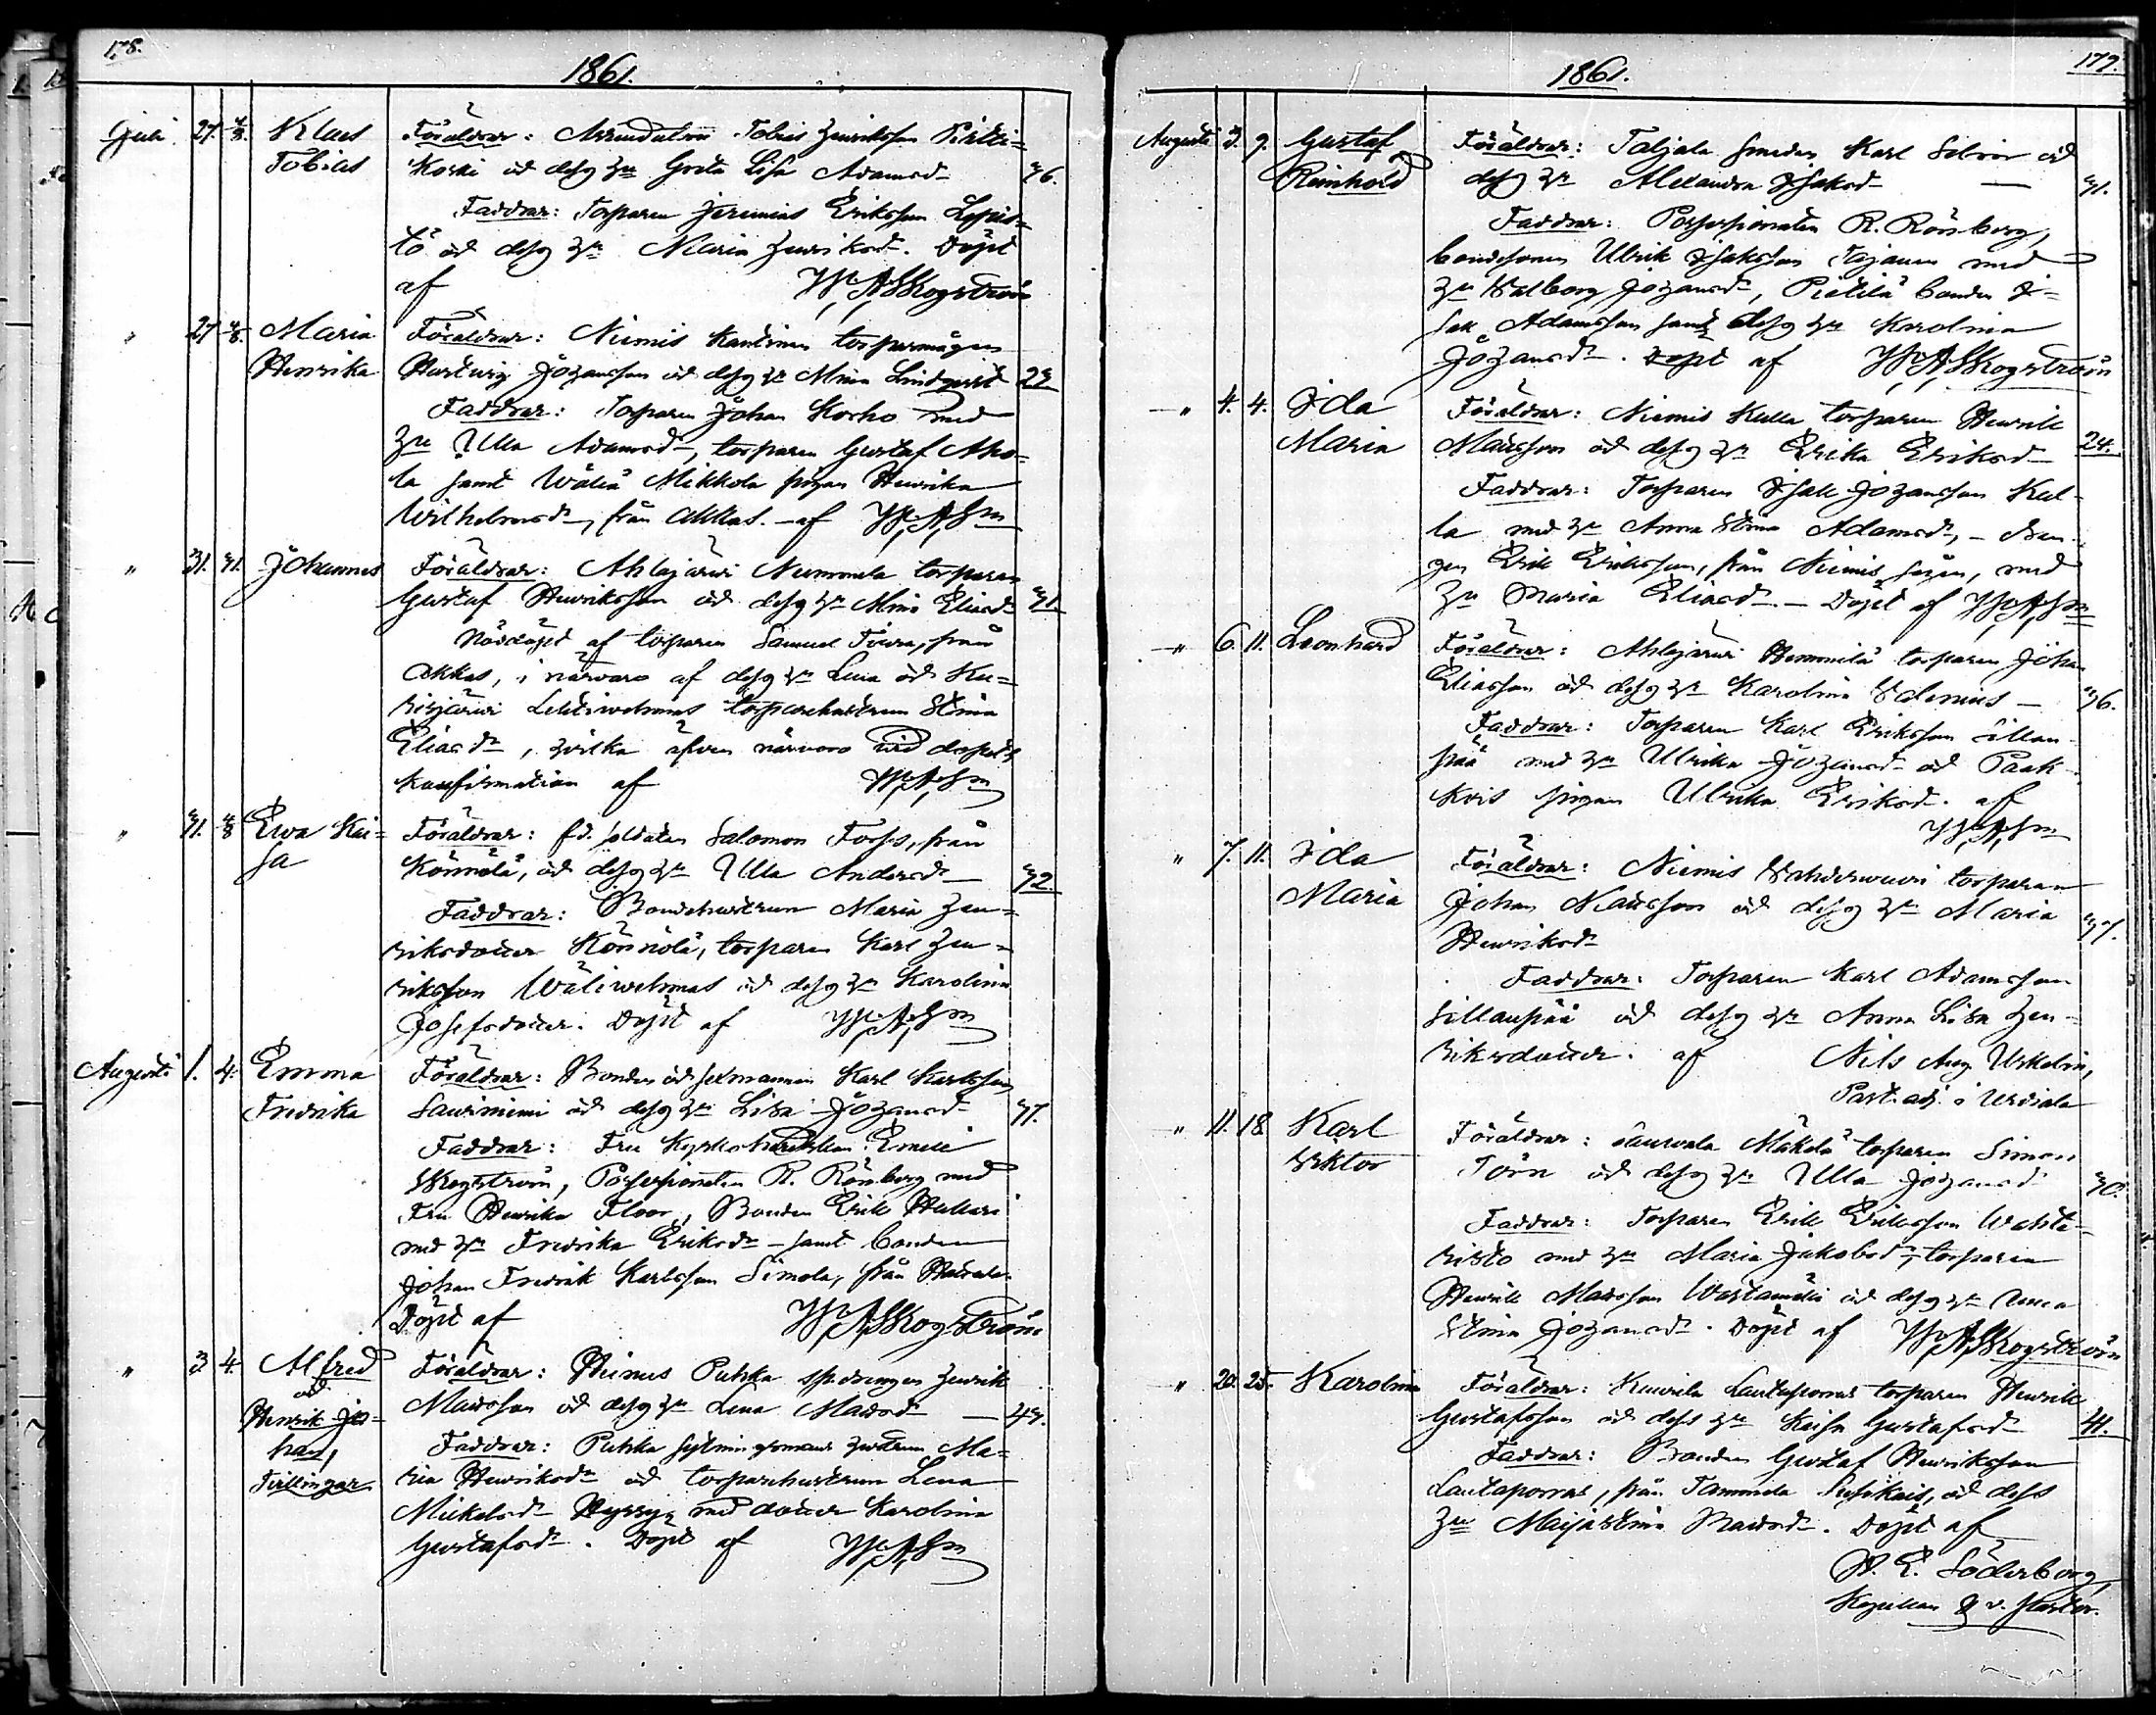 178.
1861.
Juli. 27. 4/8. Klaus Föräldrar: Arrendatorn Tobias Henriksson Pirtti=
Tobias Koski od dess hu Greta Lisa Adamsd 36.
Faddrar: Torparen Jeremias Eriksson
tö od dess hu Maria Henriksd. Döpt
af W. A. Skogström
" 27. 4/8. Maria Föräldrar: Niemis torparmågen
Henrika Hartwig Johansson od dess hu Mina Lindqvist 22
Faddrar: Torparen Johan Korho med
hu Ulla Adamsd, torparen Gustaf Aho=
la samt Wäliä Mikkola pigan Henrika
Wilhelmsd, från Akkas. af W. A. Sm
" 31. 31. Johannes Föräldrar: Ahlajärwi Nummela torparen
Gustaf Henriksson od dess hu Mina Eliasd 31.
Nöddöpt af torparen Samuel från
Akkas, i närvaro af dess hu Lena od Ku=
risjärwi torparehustrun Stina
Eliasdr, hvilka äfven närvoro vid dopets
konfirmation af W. A. Sm
" 31. 4/8 Ewa Kai= Föräldrar: fd. soldaten Salomon Forss, från
sa Könnölä, od dess hu Ulla Andersd 32
Faddrar: Bondehustrun Maria Hen=
riksdotter Könnölä, torparen Karl Hen=
riksson Wäliwehmas od dess hu Karolina
Josefsdotter. Döpt af W. A. Sm
Augusti 1. 4. Emma Föräldrar: Bonden od sexmannen Karl Karlsson
Fredrika Sawiniemi od dess hu Lisa Johansd 37.
Faddrar: Fru Emelie
Skogström, Possessionaten R. Rönberg med
Fru Henrika Floor, Bonden Erik Hukari
med hu Fredrika Eriksd samt bonden
Johan Fredrik Karlsson Simola, från
Döpt af W. A. Skogström
" 3 4. Alfred Föräldrar: Puhka drengen Henrik
od Matsson od dess hu Lena Matsd
Henrik Jo= Faddrar: Puhka hustrun Ma=
han, ria Henriksd od torparehustrun Lena
Tvillingar. Mickelsd Hyrsy, med dotter Karolina
Gustafsd. Döpt af W. A. Sm
179.
1861.
Augusti 3. 9. Gustaf Föräldrar: Taljala smeden Karl od
Reinhold dess hu Alexandra Isaksd 31.
Faddrar: Possessionaten R. Rönberg,
bondesonen Ulrik Isaksson med
hu Walborg Johansd, Pietilä bonden I=
sak Adamsson samt dess hu Karolina
Johansd. Döpt af W. A. Skogström
" 4. 4. Ida Föräldrar: Niemis Kulla torparen Henrik
Maria Matsson od dess hu Erika Eriksd 24.
Faddrar: Torparen Isak Johansson Kul=
la med hu Anna Stina Adamsd, dren=
gen Erik Eriksson, från Niemis, med
hu Maria Eliasd. Döpt af W. A. Sm
" 6. 11. Leonhard Föräldrar: Ahlajärwi torparen Johan
Eliasson od dess hu Karolina Walenius 36.
Faddrar: Torparen Karl Eriksson Sillan=
pää med hu Ulrika Johansd od Paak=
kois pigan Ulrika Eriksd. af
W. A. Sm
" 7. 11. Ida Föräldrar: Niemis torparen
Maria Johan Matsson od dess hu Maria 37.
Henriksd
Faddrar: Torparen Karl Adamsson
Sillanpää od dess hu Anna Lisa Hen=
riksdotter. af Nils Aug.
Past. adj. i Urdiala
" 11. 18 Karl Föräldrar: Mäkelä torparen Simon
Viktor Törn od dess hu Ulla Johansd 30.
Faddrar: Torparen Erik Eriksson Wahte=
risto med hu Maria Jakobsd, torparen
Henrik Matsson Wartamäki od dess hu Anna
Stina Johansd. Döpt af W. A. Skogström
" 20. 25. Karolina Föräldrar: Lautaporras torparen Henrik
Gustafsson od dess hu Kaisa Gustafsd 41.
Faddrar: Bonden Gustaf Henriksson
Lautaporras, från Tammela, od dess
hu Maijastina Matsd. Döpt af
H. E. Söderborg,
Kapellan & v. Pastor.